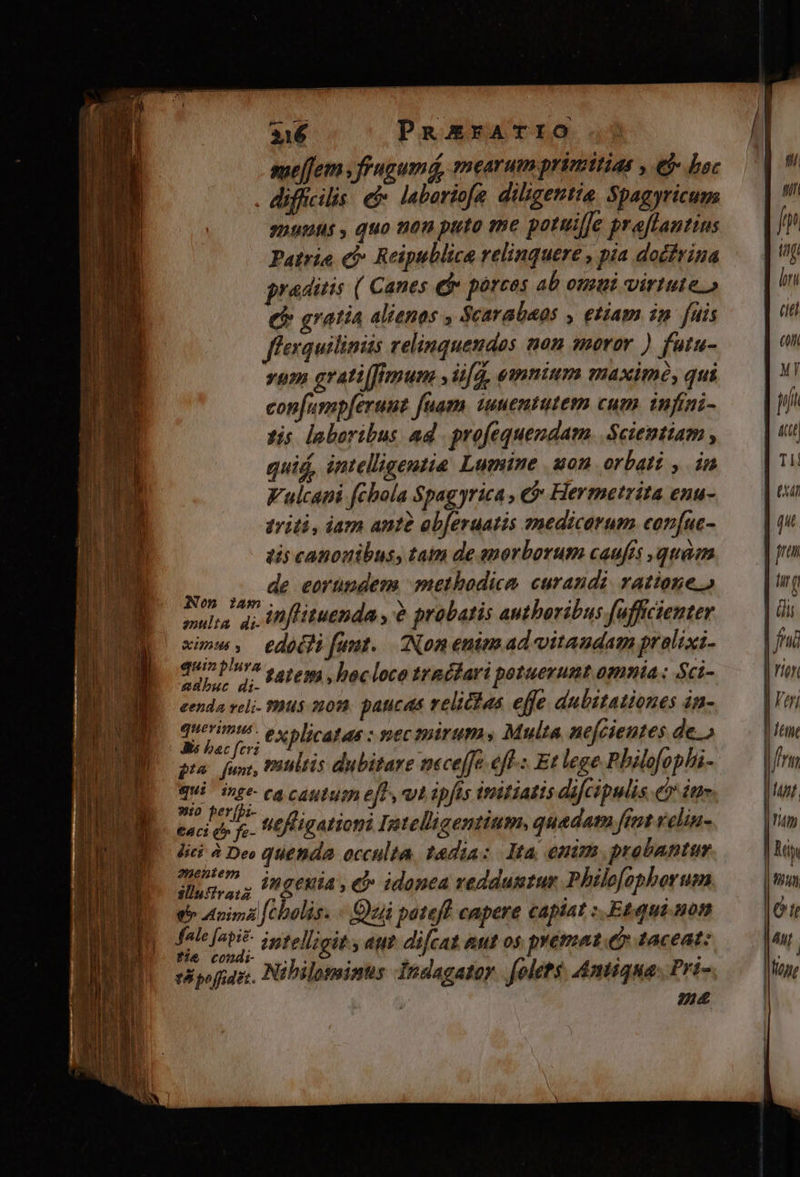 216 PRÆFATIO
messem, frugumq́, mearum primitias, & hoc
difficilis & laboriosæ diligentiæ Spagyricum
munus, quo non puto me potuisse præstantius
Patriæ & Reipublicæ relinquere, pia doctrina
præditis (Canes & porcos ab omni virtute
& gratia alienos, Scarabæos, etiam in suis
sterquiliniis relinquendos non moror) futu-
rum gratissimum, iisq́, omnium maximè, qui
consumpserunt suam iuuentutem cum infini-
tis laboribus ad prosequendam Scientiam,
quiq́, intelligentiæ Lumine non orbati, in
Vulcani schola Spagyrica, & Hermetrita enu-
triti, iam antè obseruatis medicorum consue-
tis canonibus, tam de morborum causis, quàm
de eorundem methodica curandi ratione
instituenda, è probatis authoribus sufficienter
edocti sunt. Non enim ad vitandam prolixi-
tatem, hoc loco tractari potuerunt omnia: Sci-
mus non paucas relictas esse dubitationes in-
explicatas: nec mirum, Multa nescientes de
multis dubitare necesse est: Et lege Philosophi-
ca cautum est, vt ipsis initiatis discipulis & in-
uestigationi Intelligentium, quædam sint relin-
quenda occulta tædia: Ita enim probantur
ingenia, & idonea redduntur Philosophorum
scholis. Qui potest capere capiat: Et qui non
intelligit, aut discat aut os premat & taceat:
Nihilominus Indagator solers Antiquæ Pri-
mæ
Non iam
multa di-
ximus,
quin plura
adhuc di-
cenda reli-
querimus.
His hac scri
pta sunt,
qui inge-
nio perspi-
caci & fe-
lici à Deo
mentem
illustratā
& Animā
sale sapiē-
tiæ condi-
tā possidēt.